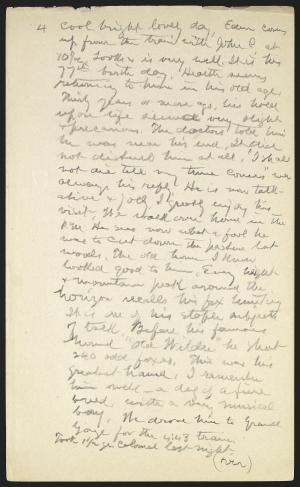 4 Cool bright lovely day. Eden comes
up from the train with John C. at
10. looks is very well. It is his
77th birth day. Health seems
returning to him in his old age.
Thirty years or more ago, his hold
upon life seemed very slight
& precarious. The doctors told him
he was near his end. It did
not disturb him at all. "I shall
not die till my time comes" was
always his reply. He is now talk-
ative & jolly. I greatly enjoy his
visit. We walk over home in the
P.M. He says now what a fool he
was to cut down the pasture lot
woods. The old home
looked good to him. Every height
& mountain peak around the
horizon recalls his fox hunting
It is one of his staple subjects
of talk. Before his famous
hound "Old Wildie" he shot
240 odd foxes. This was his
greatest hound. I remember
him well – a dog of a fine
breed, with a very musical
bay. We drove him to Grand
Gorge for the 4:43 train.
Took 1/2 gr. Calomel last night.
(over)